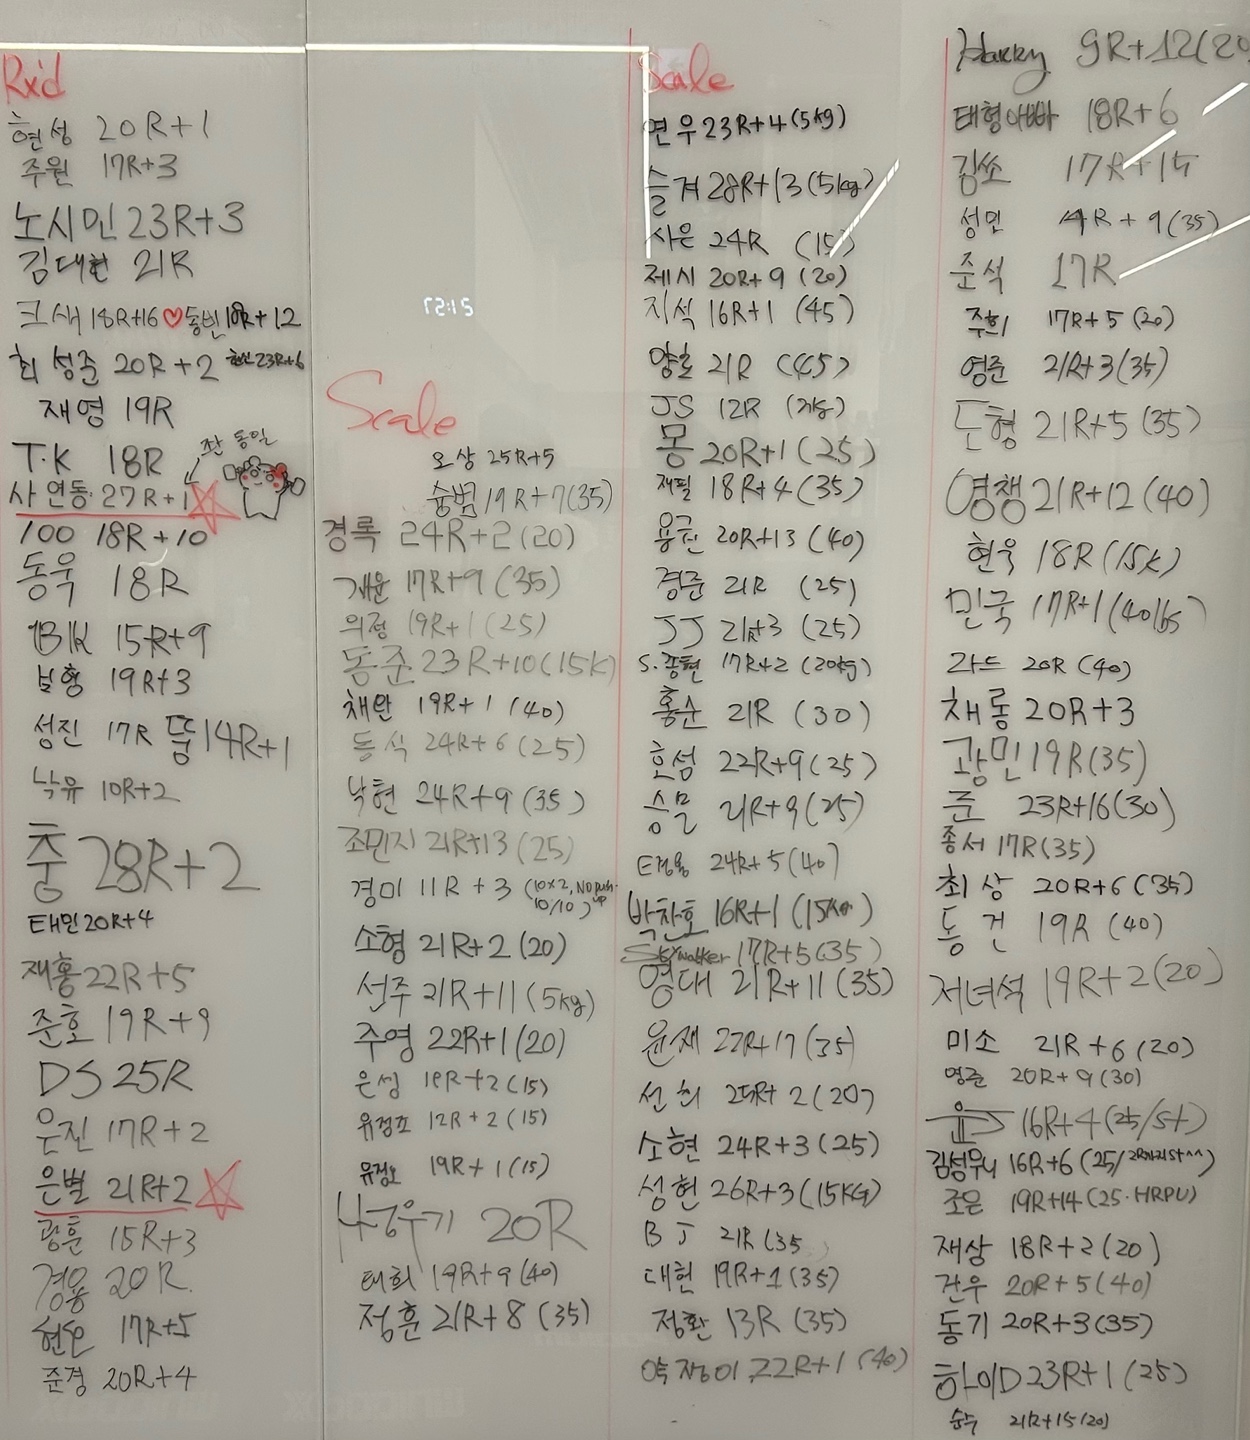 Rx'd
현성 20R+1
주원 17R+3
노시민 23R+3
김대현 21R
크새 18R+16 ♡ 동빈 18R+12
최성준 20R+2 현신 23R+6
재영 19R
T.K 18R
좌 동일
사연동 27R+1
100 18R+10
동욱 18R
1BIK 15R+9
보형 19R+3
성진 17R 뚬 14R+1
낙유 10R+2
충 28R+2
태민 20R+4
재홍 22R+5
준호 19R+9
DS 25R
은진 17R+2
은별 21R+2
광훈 15R+3
경용 20R
17R+5
준경 20R+4
12:15
Scale
오상 25R+5
숭범 19R+7(35)
경록 24R+2(20)
개운 17R+9 (35)
의정 19R+1(25)
동준 23R+10(15K)
채완 19R+1 (40)
동식 24R+6(25)
낙현 24R+9 (35)
조민지 21R+13(25)
경미 11R+3 (10x2, No push-up 10/10)
소형 21R+2(20)
선주 21R+11(5kg)
주영 22R+1(20)
은성 18R+2(15)
유정호 12R+2(15)
유정호 19R+1(15)
20R
태희 19R+9(40)
정훈 21R+8 (35)
Scale
연우 23R+4(5kg)
슬겨 28R+13(5kg)
사은 24R (15)
제시 20R+9 (20)
지석 16R+1 (45)
양호 21R (45)
JS 12R
몽 20R+1(25)
재필 18R+4(35)
용진 20R+13 (40)
경준 21R (25)
JJ 21R+3 (25)
S.종현 17R+2 (20kg)
홍순 21R (30)
호섬 22R+9(25)
승믈 21R+9(25)
24R+5(40)
박찬호 16R+1(15kg)
Skywalker 17R+5(35)
영대 21R+11(35)
윤재 22R+17(35)
선희 25R+2(20)
소현 24R+3(25)
성현 26R+3(15KG)
BJ 21R(35
대헌 19R+1(35)
정환 13R (35)
약장이 22R+1 (40)
Harry 9R+12(20
태형아빠 18R+6
김쏘 17R+15
성민 R+9(35)
준석 17R
주희 17R+5(20)
영준 21R+3(35)
도형 21R+5(35)
영챙 21R+12(40)
현욱 18R(15k)
민국 17R+1(40lbs)
라드 20R (40)
채롱 20R+3
광민 19R(35)
준 23R+16(30)
종서 17R(35)
최상 20R+6(35)
동건 19R (40)
저녀석 19R+2(20)
미소 21R+6(20)
영준 20R+9(30)
윤 16R+4(25/5+)
16R+6(25/2R까지5+^^)
조은 19R+14(25·HRPU)
재상 18R+2(20)
건우 20R+5(40)
동기 20R+3(35)
하이D 23R+1(25)
순수 21R+15(20)